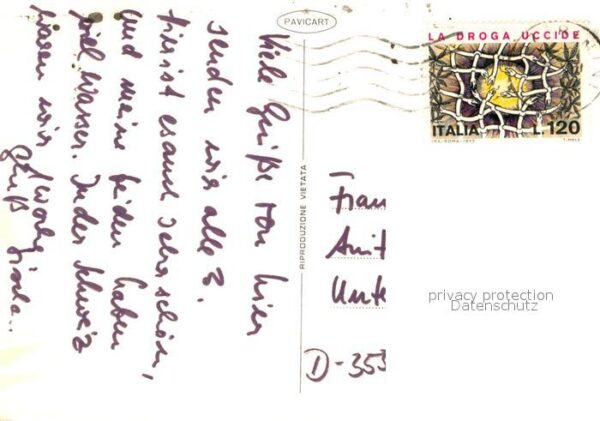 PAVICART
LA DROGA UCCIDE
ITALIA L.120
I.P.S.-ROMA-1977
RIPRODUZIONE VIETATA
Viele Grüße von hier
senden wir alle 3.
Hier ist es auch sehr schön,
und meine beiden haben
viel Wasser. In der Schweiz
waren wir
Grüß
Frau
Anit
Unte
D-353
privacy protection
Datenschutz